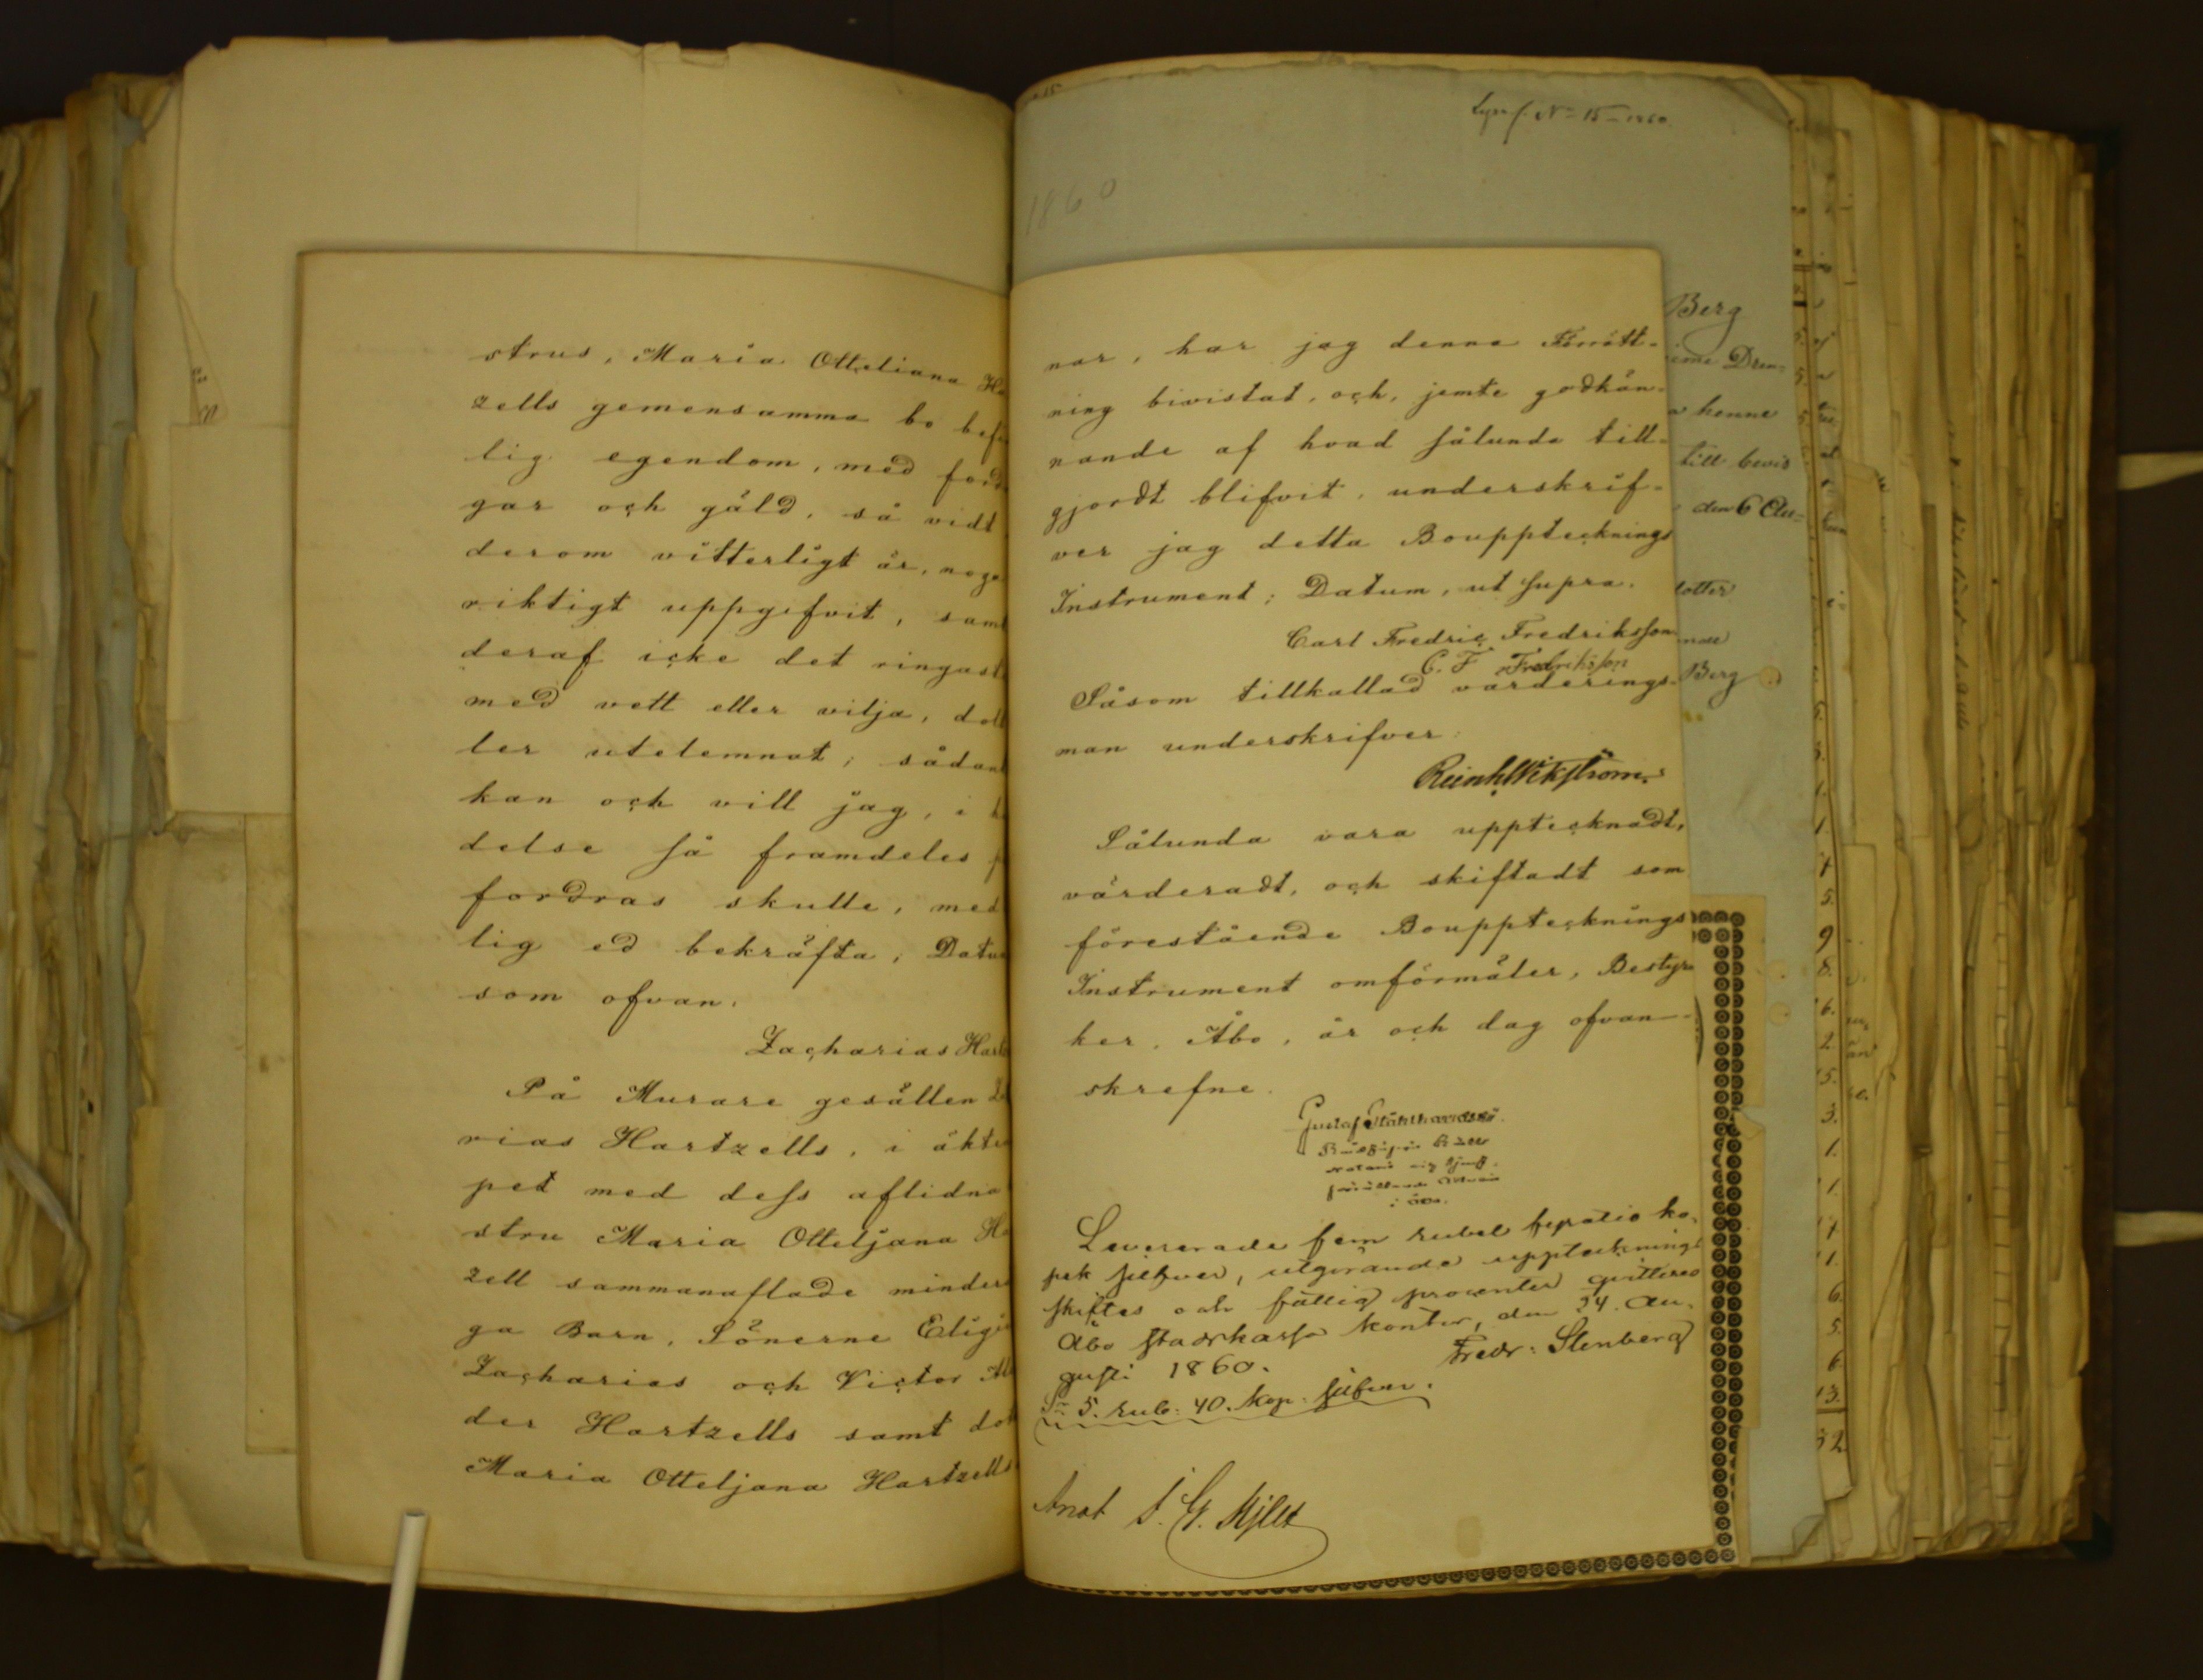 strus, Maria Otteliana Ha
zells gemensamma bo befi
lig egendom, med ford
gar och gäld, så vidt
derom vitterligt är, noga
riktigt uppgifvit, samt
deraf icke det ringast
med vett eller vilja, dolt
ler utelemnat; sådant
kan och vill jag, i h
delse så framdeles p
fordras skulle, med
lig ed bekräfta; Datum
som ofvan.
Zacharias Hart
På Murare gesällen Za
rias Hartzells, i äkten
pet med dess aflidna
stru Maria Otteljana Ha
zell sammanaflade minder
ga Barn, Sönerne Eligi
Zacharias och Victor Al
der Hartzells samt dot
Maria Otteljana Hartzells
N 15 1860
1860
nar, har jag denna Förrätt-
ning bivistat, och, jemte godkän-
nande af hvad sålunda till-
gjordt blifvit, underskrif-
ver jag detta Boupptecknings
Instrument; Datum, ut supra.
Carl Fredric Fredriksson
C. F Fredriksson
Såsom tillkallad värderings-
man underskrifver:
Reinh Wikström.
Sålunda vara upptecknadt,
värderadt, och skiftadt som
förestående Boupptecknings
Instrument omförmäler, Bestyr-
ker. Åbo, år och dag ofvan-
skrefne.
Gustaf Stålhandske
i Åbo.
Levererade fem rubel fyratio ko-
pek silfver, utgörande upptecknings
skiftes och fattig procenter qvitteras
Åbo stadskassa kontor, den 24. Au-
gusti 1860. Fredr: Stenberg
Sr 5. rub: 40. kop. silfver.
Berg
henne
till bevis
den 6 Au-
dotter
Berg